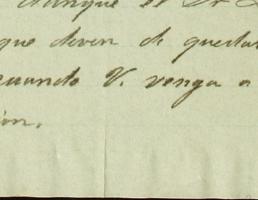 Aunque el Sr
que deven de quedar
cuando V. venga a
ion.